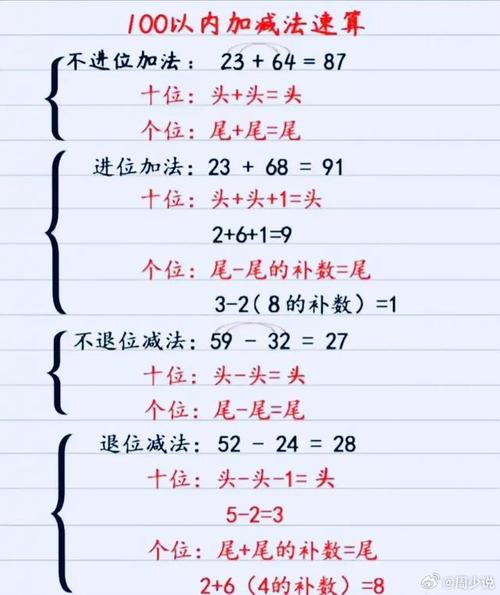 100以内加减法速算
不进位加法： 23 + 64 = 87
十位：头+头=头
个位：尾+尾=尾
进位加法：23 + 68 = 91
十位：头+头+1=头
2+6+1=9
个位：尾-尾的补数=尾
3-2(8的补数)=1
不退位减法：59 - 32 = 27
十位：头-头=头
个位：尾-尾=尾
退位减法：52 - 24 = 28
十位：头-头-1=头
5-2=3
个位：尾+尾的补数=尾
2+6 (4的补数)=8
@周少说